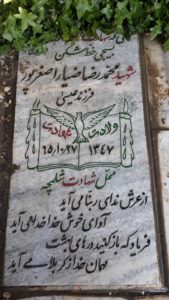 بسیجی خط شکن
شهید محمدرضا ضیاء اصغرپور
فرزند عیسی
ولادت شهادت
۱۳۴۷ ۶۵/۱۰/۲۷
محل شهادت شلمچه
از عرش ندای ربنا می آید
آوای خوش خدا خدا می آید
فریاد که باز کنید درهای بهشت
مهمان خدا ز کربلا می آید